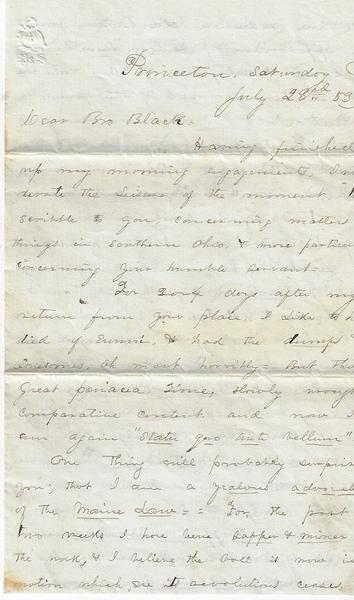 Princeton, Saturday
July 23rd 53
Dear Bro Black.
Having finished
up my morning engagements, I now
devote the leisure of the moment, to
scribble to you, concerning matters
things in Southern Ohio, & more particular
concerning your humble servant.
For 3 or 4 days after my
return from your place I like to h
died of Ennui, & had the dumps
most horribly - But tha
Great panacea, Time, slowly
comparative content and now I
am again "Statu quo ante bellum"
One thing will probably surprise
you; that I am a zealous advocate
of the Maine Law = = For the past
two weeks I have been sapper & miner
the work, & I believe the ball is now in
motion which, ere its revolutions ceases,